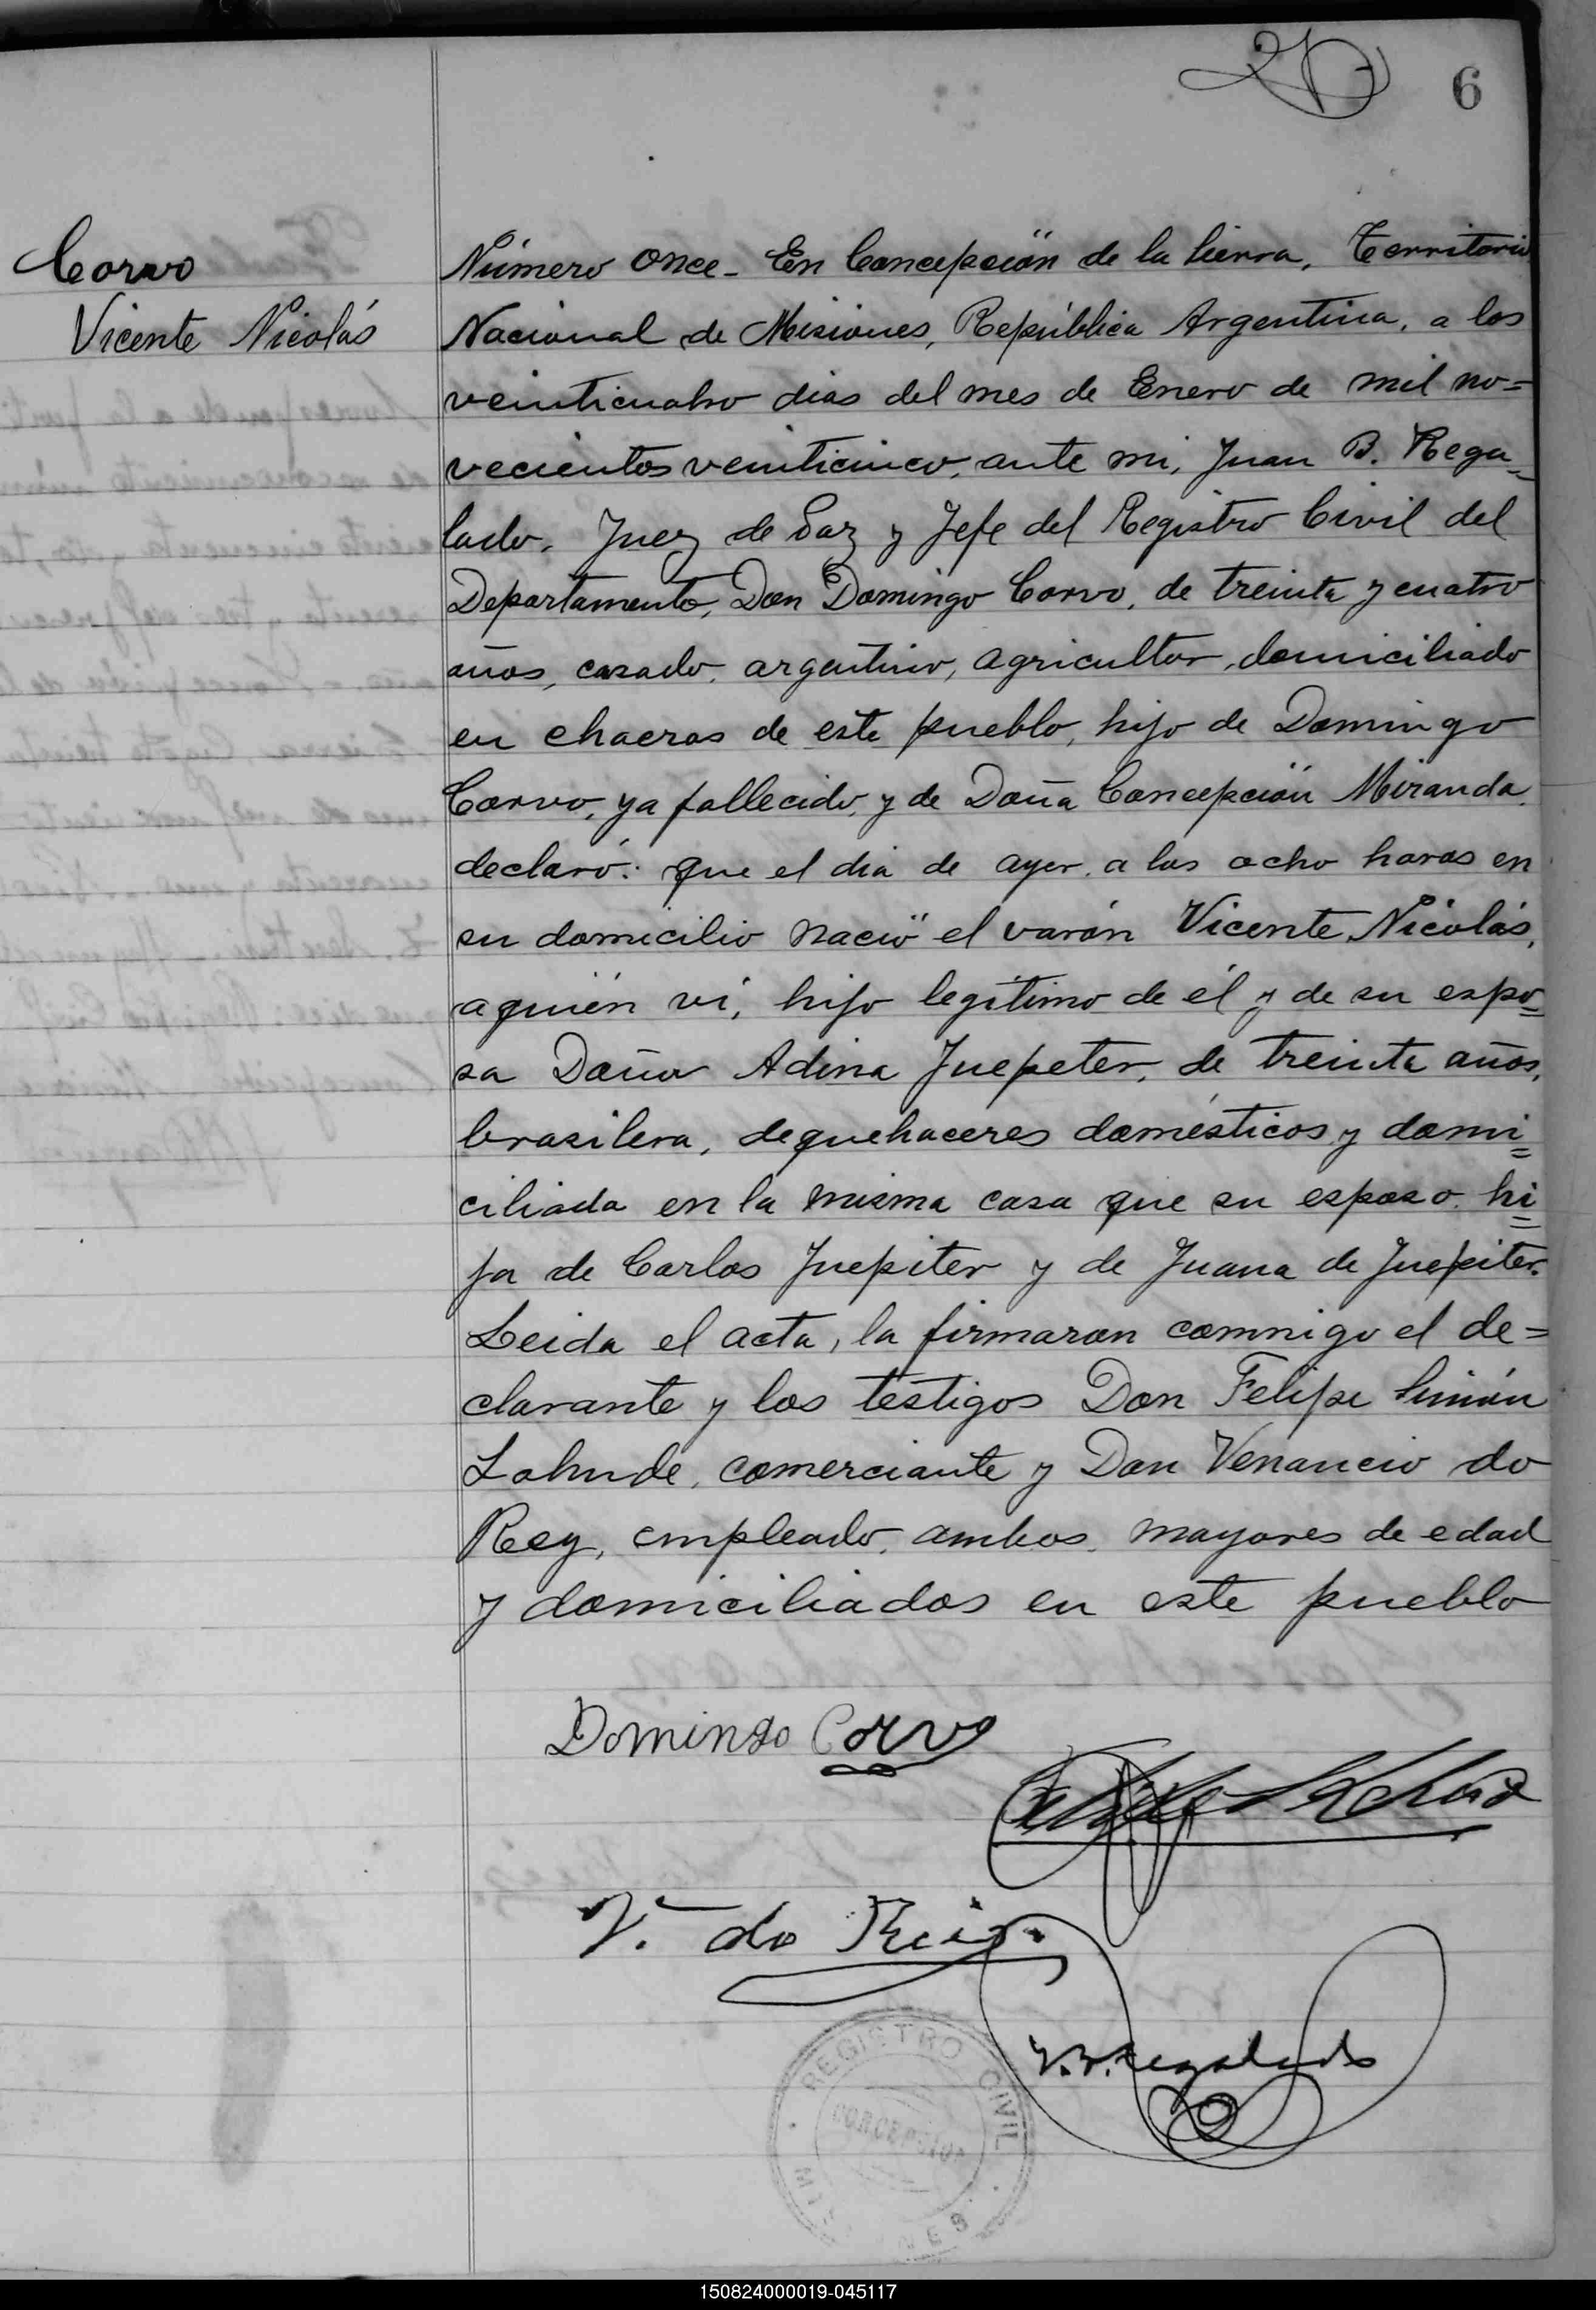 6
Corvo
Vicente Nicolás
Número once - En Concepción de la Sierra, Territorio
Nacional de Misiones, República Argentina, a los
veinticuatro dias del mes de Enero de mil no=
vecientos veinticinco, ante mi, Juan B. Rega=
lado, Juez de Paz y Jefe del Registro Civil del
Departamento, Don Domingo Corvo, de treinta y cuatro
años, casado, argentino, agricultor, domiciliado
en chacras de este pueblo, hijo de Domingo
Corvo, ya fallecido, y de Doña Concepción Miranda,
declaró: que el dia de ayer, a las ocho horas en
su domicilio nació el varón Vicente Nicolás,
a quién vi, hijo legítimo de él y de su espo=
sa Doña Adina Juepeter, de treinta años,
brasilera, de quehaceres domésticos y domi=
ciliada en la misma casa que su esposo, hi=
ja de Carlos Juepiter y de Juana de Juepiter.
Leida el acta, la firmaron comnigo el de=
clarante y los testigos Don Felipe Simón
Lahude, comerciante y Don Venancio do
Rey, empleado, ambos mayores de edad
y domiciliados en este pueblo
Domingo Corvo
V. do Reis.
J.B. Regalado
REGISTRO CIVIL
CONCEPCION
MISIONES
150824000019-045117